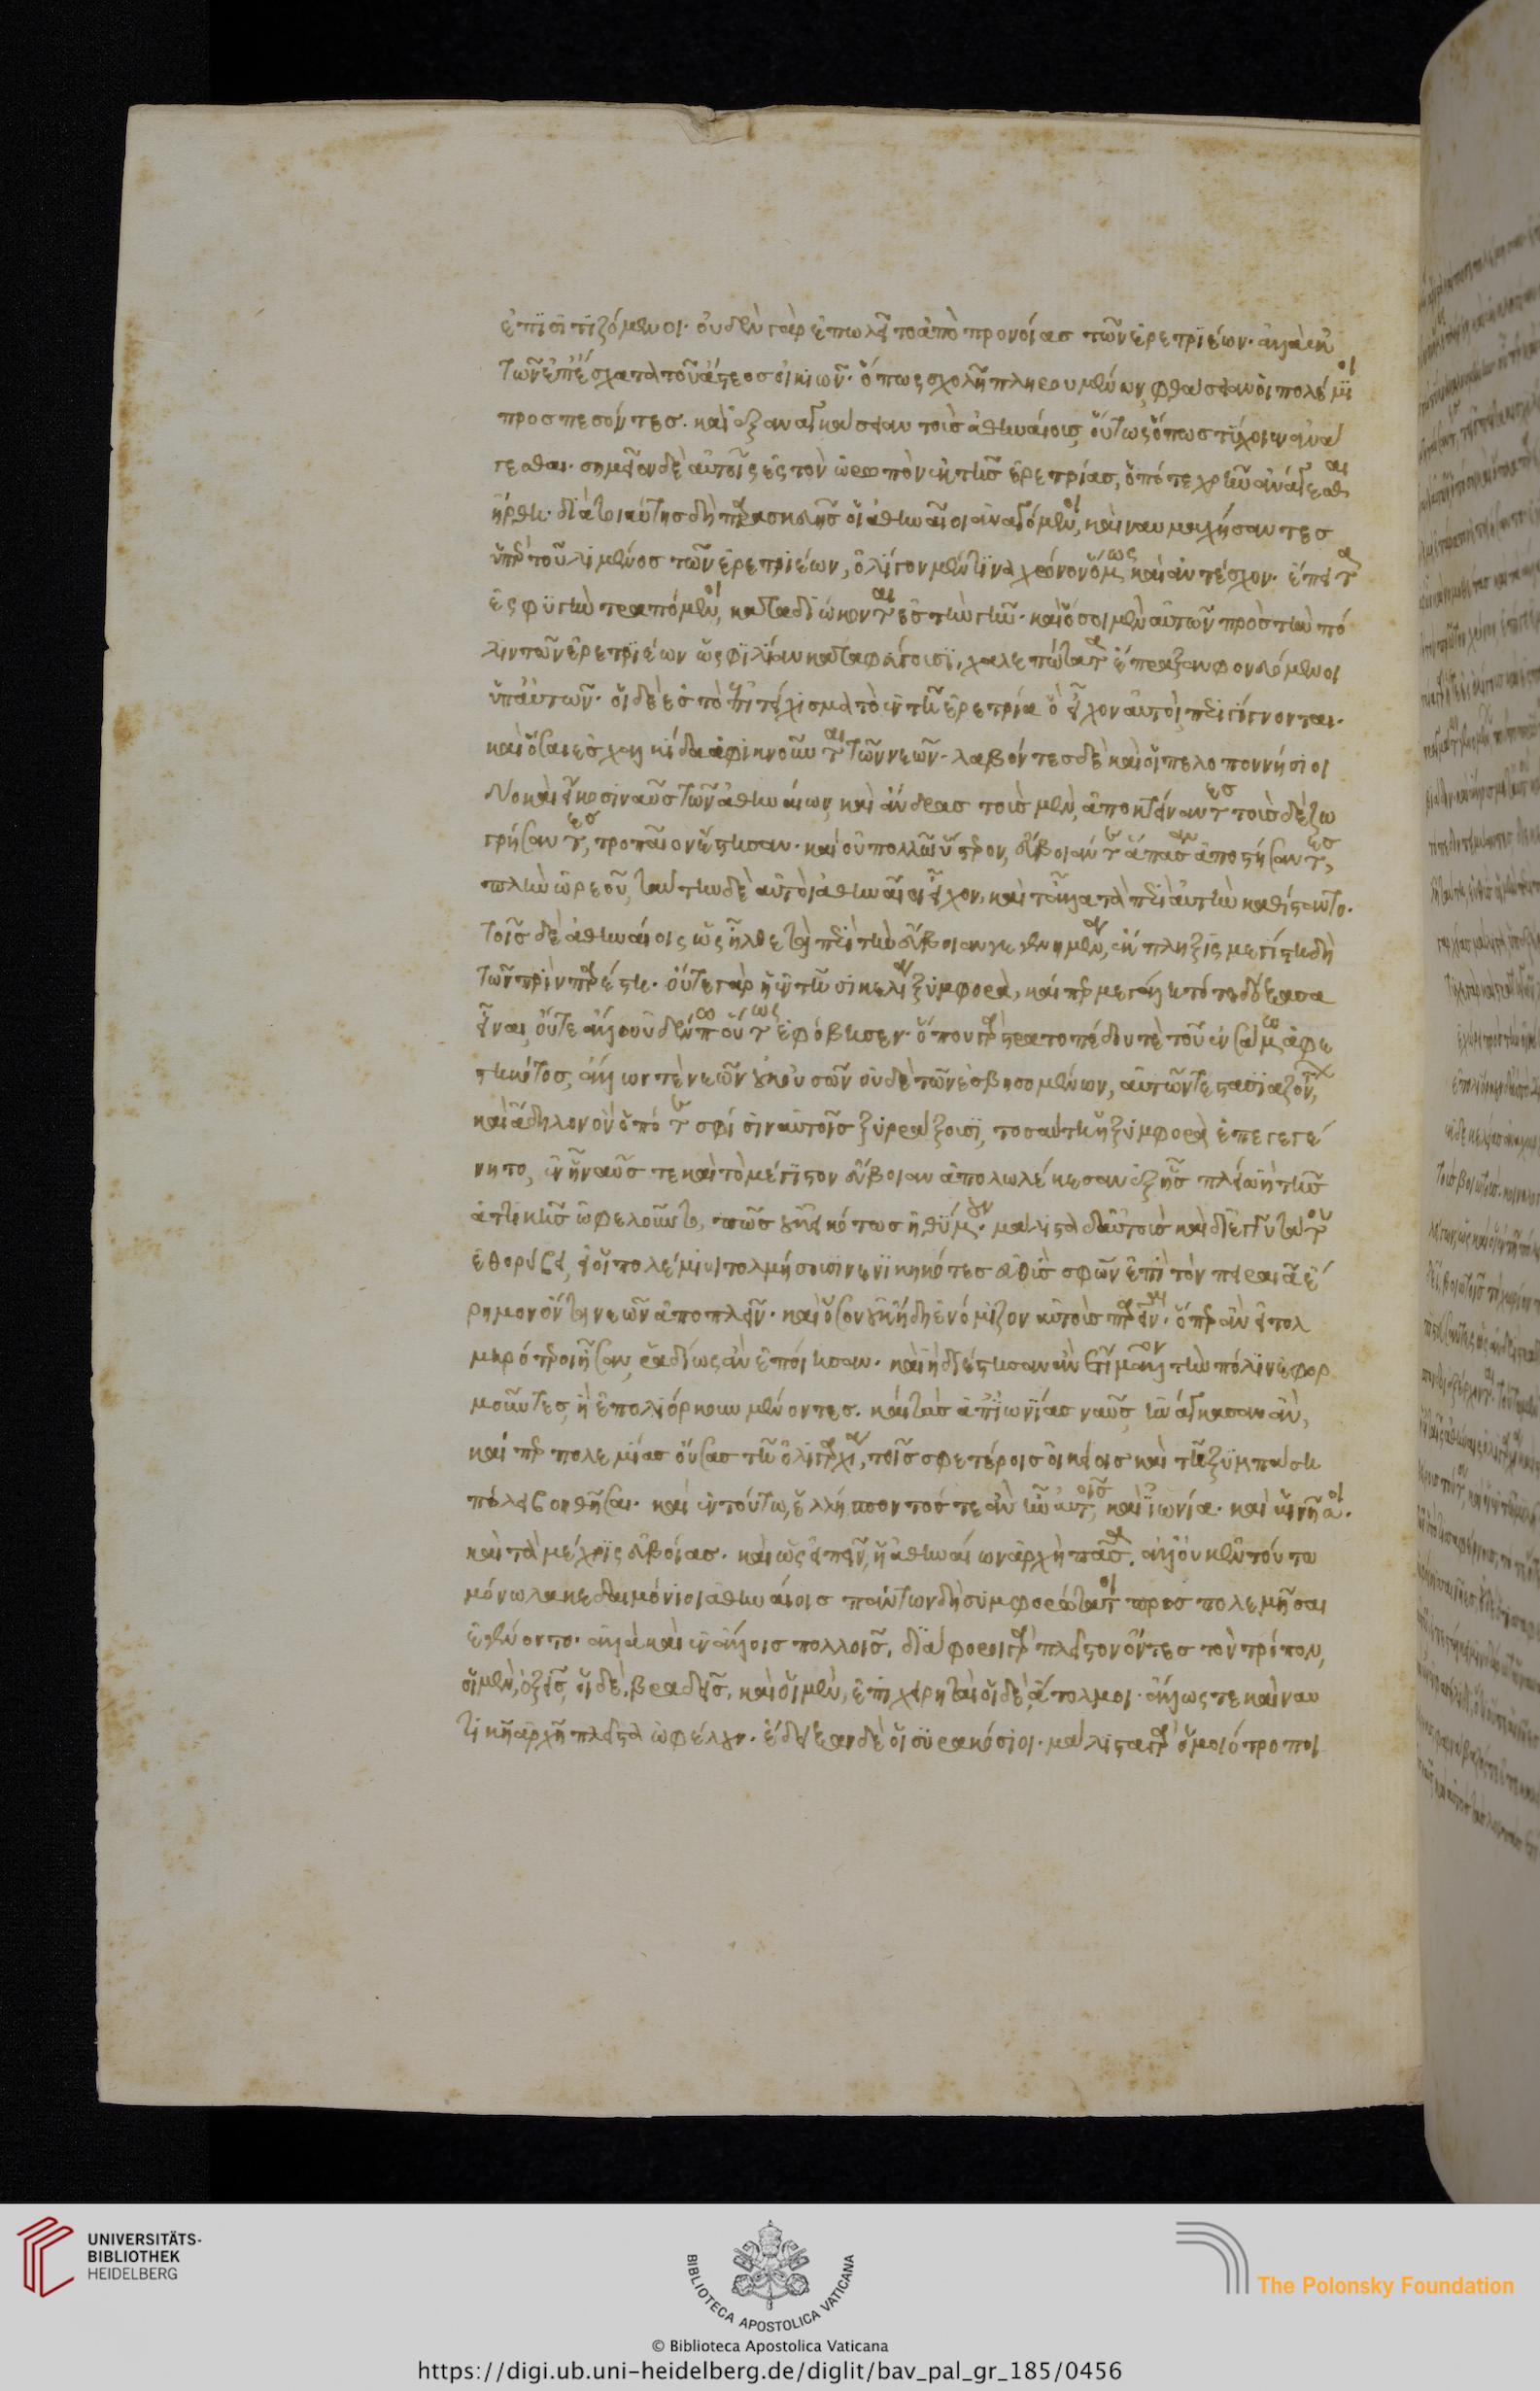 ἐπισιτιζόμενοι· οὐδὲν γὰρ ἐπωλεῖτο ἀπὸ προνοίας τῶν ἐρετριέων· ἀλλὰ ἐκ
τῶν ἐπ' ἔσχατα τοῦ ἄστεος οἰκιῶν· ὅπως σχολῇ πληρουμένων, φθάσειαν οἱ πολέμιοι
προσπεσόντες. καὶ ἐξαναγκάσειαν τοὺς ἀθηναίους, οὕτως ὅπως τύχοιεν ἀνά
γεσθαι. σημεῖον δὲ αὐτοῖς ἐς τὸν ὠρωπὸν ἐκ τῆς ἐρετρίας, ὁπότε χρὴ ἀνάγεσθαι
ἤρθη. διὰ τοιαύτης δὴ παρασκευῆς οἱ ἀθηναῖοι ἀναγόμενοι, καὶ ναυμαχήσαντες
ὑπὲρ τοῦ λιμένος τῶν ἐρετριέων, ὀλίγον μέν τινα χρόνον ὅμως καὶ ἀντέσχον· ἔπειτα
ἐς φυγὴν τραπόμενοι, καταδιώκονται ἐς τὴν γῆν· καὶ ὅσοι μὲν αὐτῶν πρὸς τὴν πό
λιν τῶν ἐρετριέων ὡς φιλίαν καταφεύγουσι, χαλεπώτατα ἔπραξαν φονευόμενοι
ὑπ' αὐτῶν· οἱ δὲ ἐς τὸ ἐπιτείχισμα τὸ ἐν τῇ ἐρετρία ὃ εἶχον αὐτοὶ περιγίγνονται·
καὶ ὅσαι ἐς χαλκίδα ἀφικνοῦνται τῶν νεῶν· λαβόντες δὲ καὶ οἱ πελοποννήσιοι
δύο καὶ εἴκοσι ναῦς τῶν ἀθηναίων, καὶ ἄνδρας τοὺς μὲν, ἀποκτείναντες τοὺς δὲ ζω
γρήσαντες, τροπαῖον ἔστησαν· καὶ οὐ πολλῶ ὕστερον, εὔβοιάν τε ἅπασαν ἀποστήσαντες,
πλὴν ὠρεοῦ, ταύτην δὲ αὐτοὶ ἀθηναῖοι εἶχον, καὶ τἆλλα τὰ περὶ αὐτὴν καθίσταντο.
τοῖς δὲ ἀθηναίοις ὡς ἦλθε τὰ περὶ τὴν εὔβοιαν γεγενημένα, ἔκπληξις μεγίστη δὴ
τῶν πρὶν παρέστη. οὔτε γὰρ ἡ ἐν τῇ σικελία ξυμφορὰ, καίπερ μεγάλη τότε δόξασα
εἶναι, οὔτε ἄλλο οὐδέν πω οὕτως ἐφόβησεν· ὅπου γὰρ στρατοπέδου τε τοῦ ἐν σάμω ἀφε
στηκότος, ἄλλων τε νεῶν οὐκ οὐσῶν οὐδὲ τῶν ἐσβησομένων, αὐτῶν τε στασιαζόντων,
καὶ ἄδηλον ὂν ὁπότε σφίσιν αὐτοῖς ξυρράξουσι, τοσαύτη ἡ ξυμφορὰ ἐπεγεγέ
νητο, ἐν ᾗ ναῦς τε καὶ τὸ μέγιστον εὔβοιαν ἀπολωλέκεσαν ἐξ ἧς πλείω ἢ τῆς
ἀττικῆς ὠφελοῦντο, πῶς οὐκ εἰκότως ἠθύμουν· μάλιστα δ' αὐτοὺς καὶ δι' ἐγγυτάτου
ἐθορύβει, εἰ οἱ πολέμιοι τολμήσουσι νενικηκότες εὐθὺς σφῶν ἐπὶ τὸν πειραιᾶ ἔ
ρημον ὄντα νεῶν ἀποπλεῖν· καὶ ὅσον οὐκ ἤδη ἐνόμιζον αὐτοὺς παρεῖναι· ὅπερ ἂν εἰ τολ
μηρότεροι ἦσαν, ῥαδίως ἂν ἐποίησαν. καὶ ἢ διέστησαν ἂν ἔτι μᾶλλον τὴν πόλιν ἐφορ
μοῦντες, ἢ ἐπολιόρκουν μένοντες. καὶ τὰς ἀπ' ἰωνίας ναῦς, ἠνάγκασαν ἂν,
καίπερ πολεμίας οὔσας τῇ ὀλιγαρχία, τοῖς σφετέροις οἰκείοις καὶ τῇ ξυμπάσῃ
πόλει βοηθῆσαι. καὶ ἐν τούτω, ἑλλήσποντός τε ἂν ἦν αὐτοῖς, καὶ ἰωνία. καὶ αἱ νῆσοι.
καὶ τὰ μέχρις εὐβοίας. καὶ ὡς εἰπεῖν, ἡ ἀθηναίων ἀρχὴ πᾶσα. ἀλλ' οὐκ ἐν τούτω
μόνω λακεδαιμόνιοι ἀθηναίοις πάντων δὴ ξυμφορώτατοι προσπολεμῆσαι
ἐγένοντο. ἀλλὰ καὶ ἐν ἄλλοις πολλοῖς, διάφοροι γὰρ πλεῖστον ὄντες τὸν τρόπον,
οἱ μὲν, ὀξεῖς, οἱ δὲ, βραδεῖς, καὶ οἱ μὲν, ἐπιχειρηταὶ οἱ δὲ, ἄτολμοι. ἄλλως τε καὶ ναυ
τικῇ ἀρχῇ πλεῖστα ὠφέλουν. ἔδειξαν δὲ οἱ συρακόσιοι. μάλιστα γὰρ ὁμοιότροποι
UNIVERSITÄTS-
BIBLIOTHEK
HEIDELBERG
BIBLIOTECA APOSTOLICA VATICANA
The Polonsky Foundation
© Biblioteca Apostolica Vaticana
https://digi.ub.uni-heidelberg.de/diglit/bav_pal_gr_185/0456